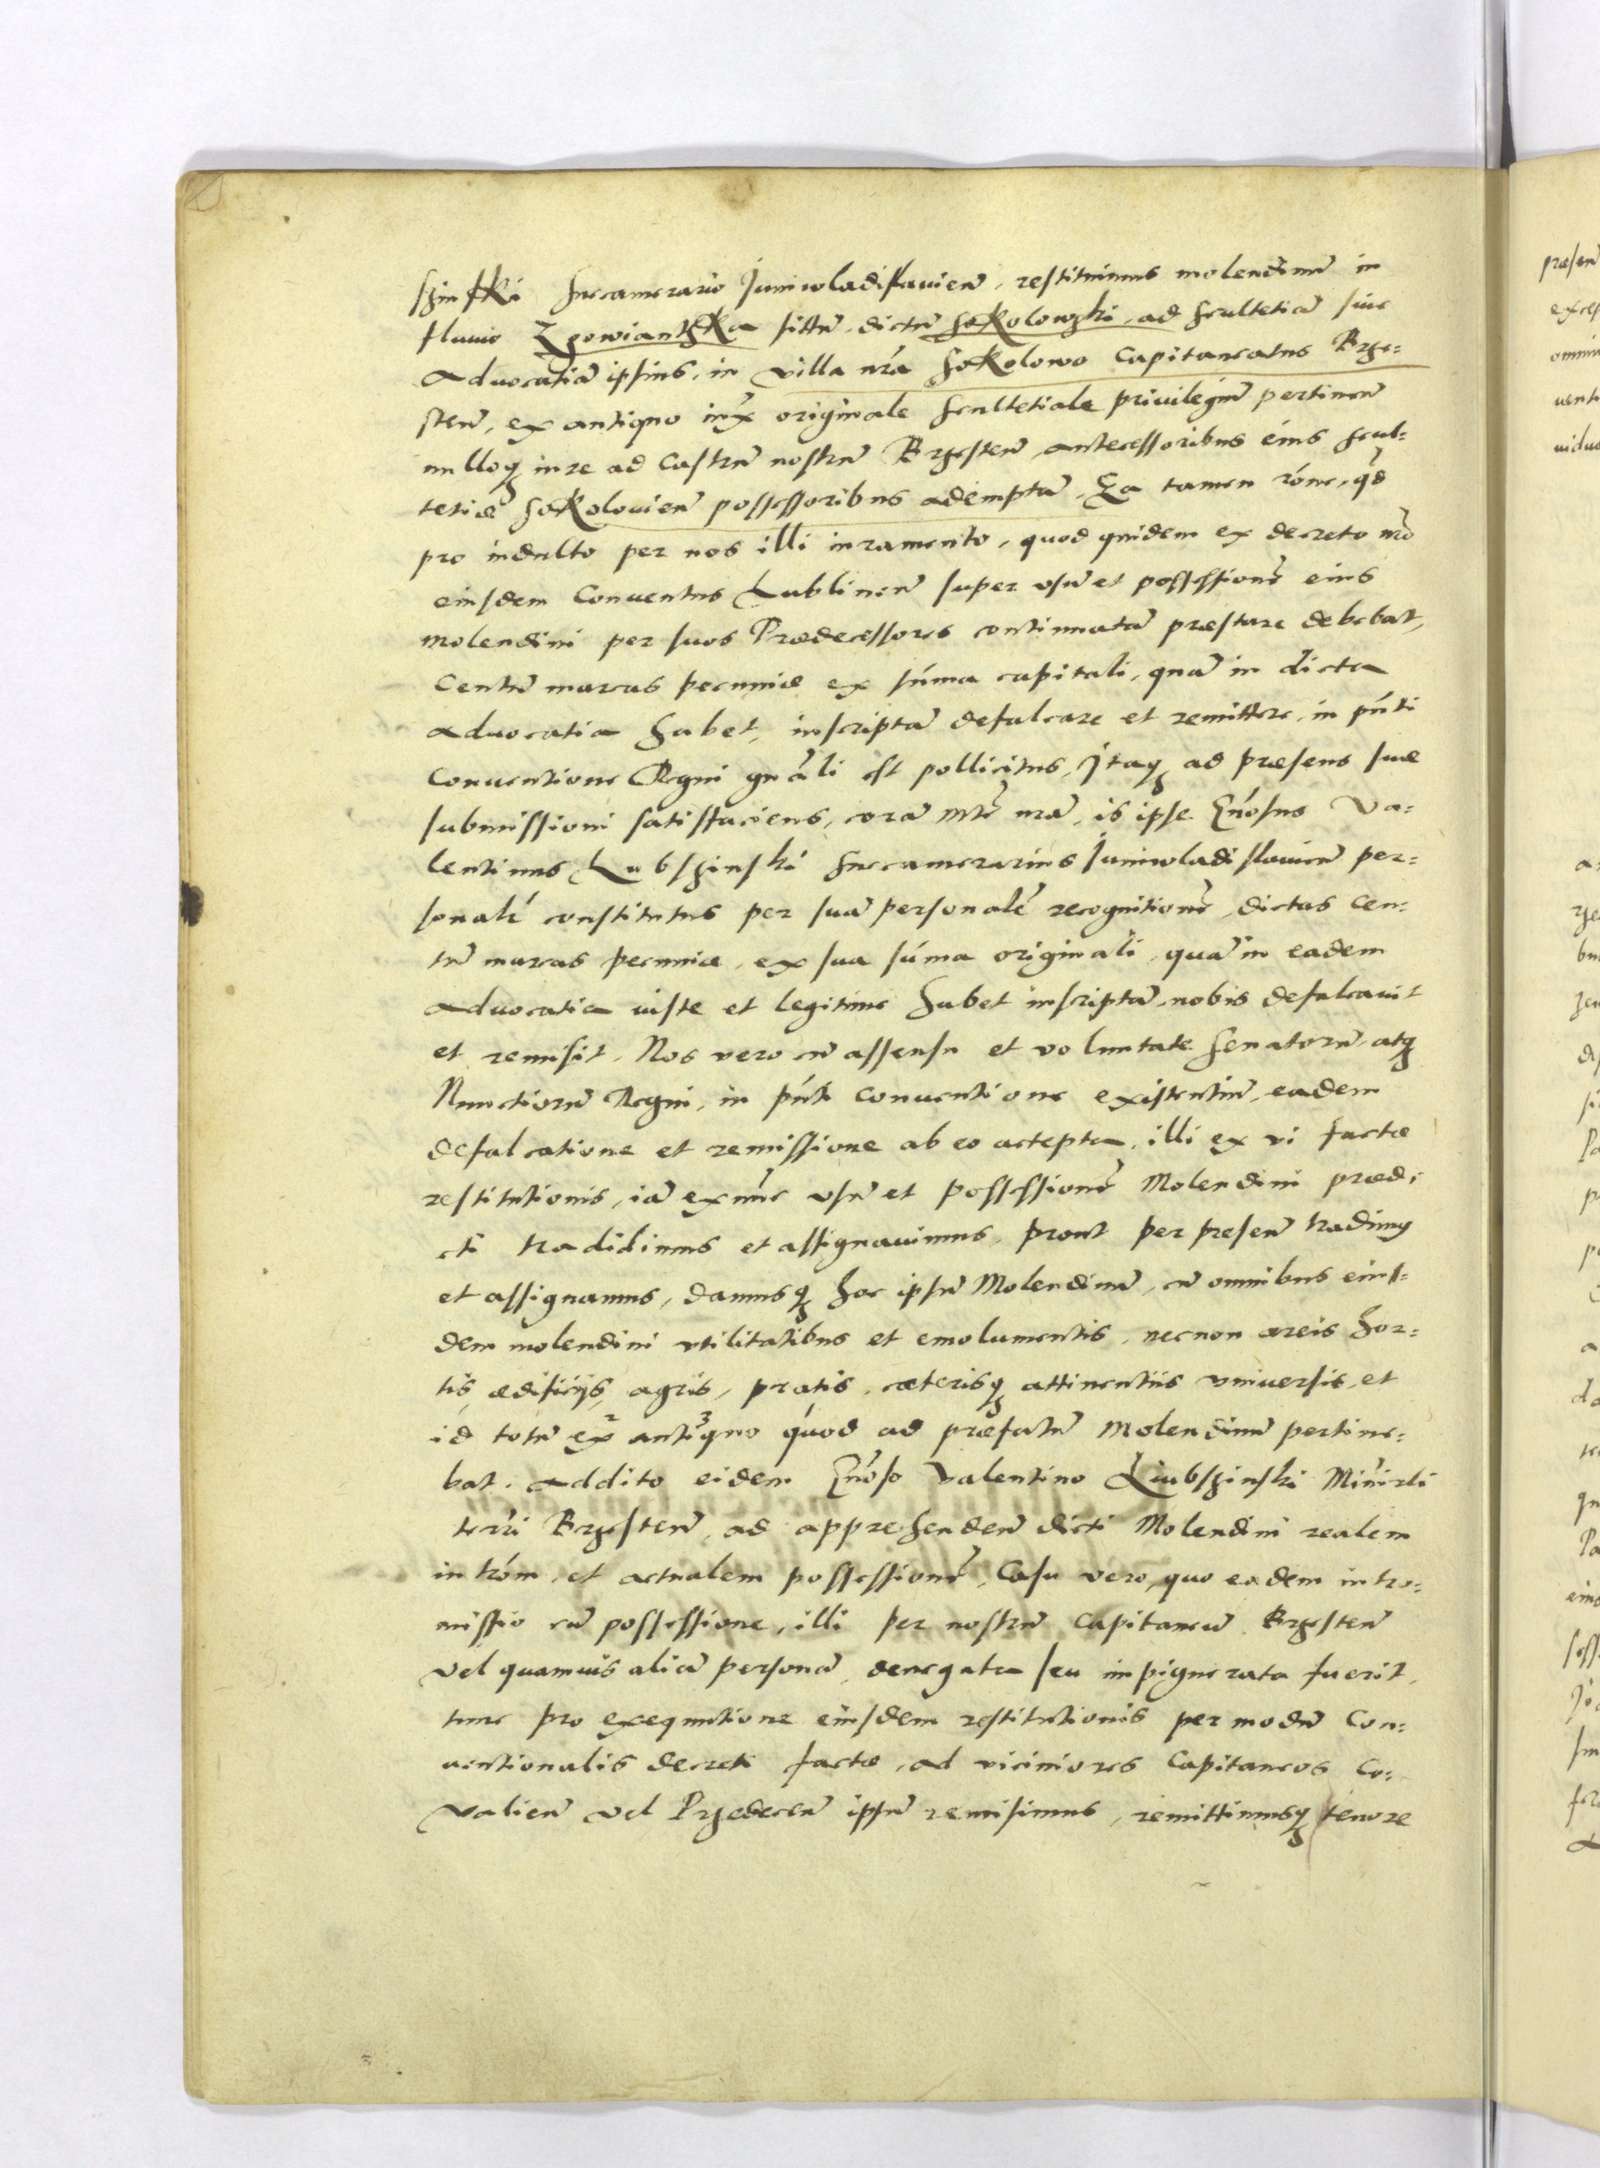 szinski Succamerario Juniwladislavien̄, restituimus molendinū in
fluvio Zgowiantzka sitū, dictū Sokolowzki, ad scultetiā sive
advocatiā ipsius, in villa nr̄a Sokolowo Capitaneatus Brze-
sten̄, ex antiquo iuxˢ originale scultetiale privilegiū pertinen̄
nulloqꝫ iure ad Castrū nostrū Brzesten̄ antecessoribus eius scul-
tetiæ Sokolovien̄ possessoribus ademptū, Ea tamen rōne, qd̄
pro indulto per nos illi iuramento, quod quidem ex decreto nr̄o
eiusdem Conventus Lublinen̄ super usū et possessionē eius
molendini per suos Prædecessores continuatā præstare debebat,
Centū marcas pecuniæ ex sūma capitali, quā in dicta
advocatia habet, inscriptā defalcare et remittere, in pn̄ti
Conventione Regni gn̄ali est pollicitus, Itaqꝫ ad præsens suæ
submissioni satisfaciens, corā Mte nr̄a, is ipse Gn̄osus Va-
lentinus Lubszinski Succamerarius Juniwladislavien̄ per-
sonalr̄ constitutus per suā personalē recognitionē, dictas Cen-
tū marcas pecuniæ, ex sua sūma originali, quā in eadem
advocatia iuste et legitime habet inscriptā, nobis defalcavit
et remisit, Nos vero cū assensu et voluntate Senatorū, atqꝫ
Nunctiorū Regni, in pn̄ti Conventione existentiū, eadem
defalcatione et remissione ab eo accepta, illi ex vi factæ
restitutionis, iā ex nūc usū et possessionē Molendini prædi-
cti tradidimus et assignavimus, prout per presen̄ tradimꝰ
et assignamus, damusqꝫ hoc ipsū Molendinū, cū omnibus eius-
dem molendini utilitatibus et emolumentis, necnon areis hor-
tis, ædificijs, agris, pratis, cæterisqꝫ attinentiis universis, et
id totū ex² anti³quo quod ad præfatū Molendinū pertine-
bat. Addito eidem Gn̄oso Valentino Liubszinski Ministrli
terr̄i Brzesten̄, ad apprehenden̄ dicti Molendini realem
intrōm, et actualem possessionē, Casu vero, quo eadem intro-
missio cū possessione, illi per nostrū Capitaneū Brzesten̄
vel quamvis aliā personā, denegata seu impignerata fuerit,
tunc pro exequutione eiusdem restitutionis per modū Con-
ventionalis decreti factæ, ad viciniores Capitaneos Co-
valien̄ vel Przedecen̄ ipsū remisimus, remittimusqꝫ tenore